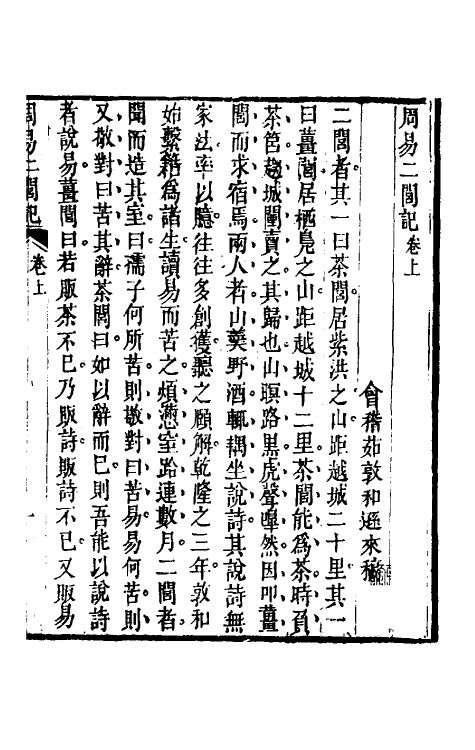 周易二閭記卷上
會稽茹敦和遜來稿
二閭者其一曰茶閭居紫洪之山距越城二十里其一
曰薑閭居栖鳧之山距越城十二里茶閭能為茶時負
茶筥趨城闉賣之其歸也山暝路黒虎聲嘷然因叩薑
閭而求宿焉兩人者山羮野酒輒耦坐說詩其說詩無
家法率以臆往往多創獲聽之頤解乾隆之三年敦和
始繫籍為諸生讀易而苦之煩懣窒路連數月二閭者
聞而造其室曰孺子何所苦則敬對曰苦易易何苦則
又敬對曰苦其辭茶閭曰如以辭而已則吾能以說詩
者說易薑閭曰若販茶不已乃販詩販詩不已又販易
周易二閭記
卷上
一